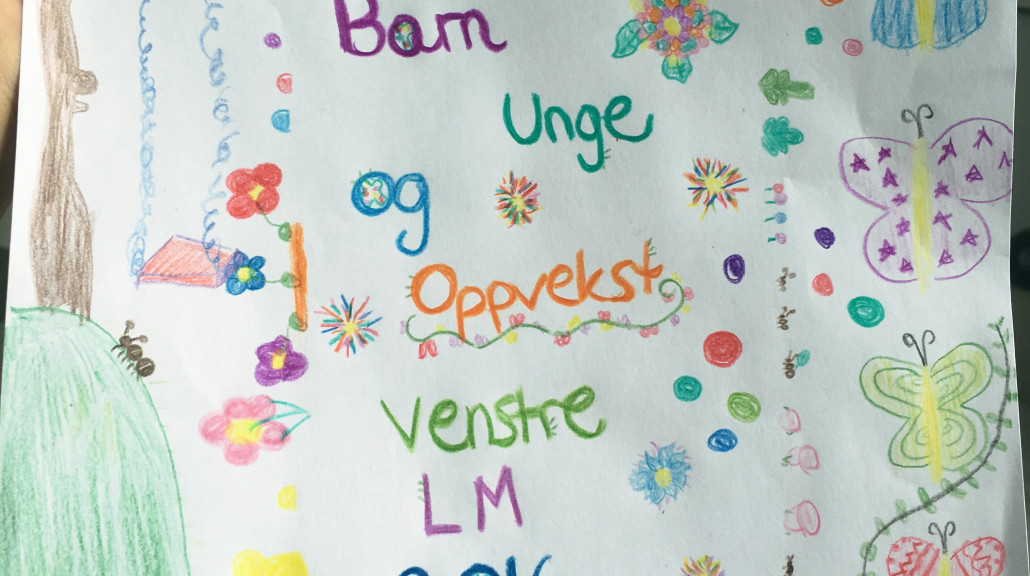 Barn
Unge
og
Oppvekst
Venstre
LM